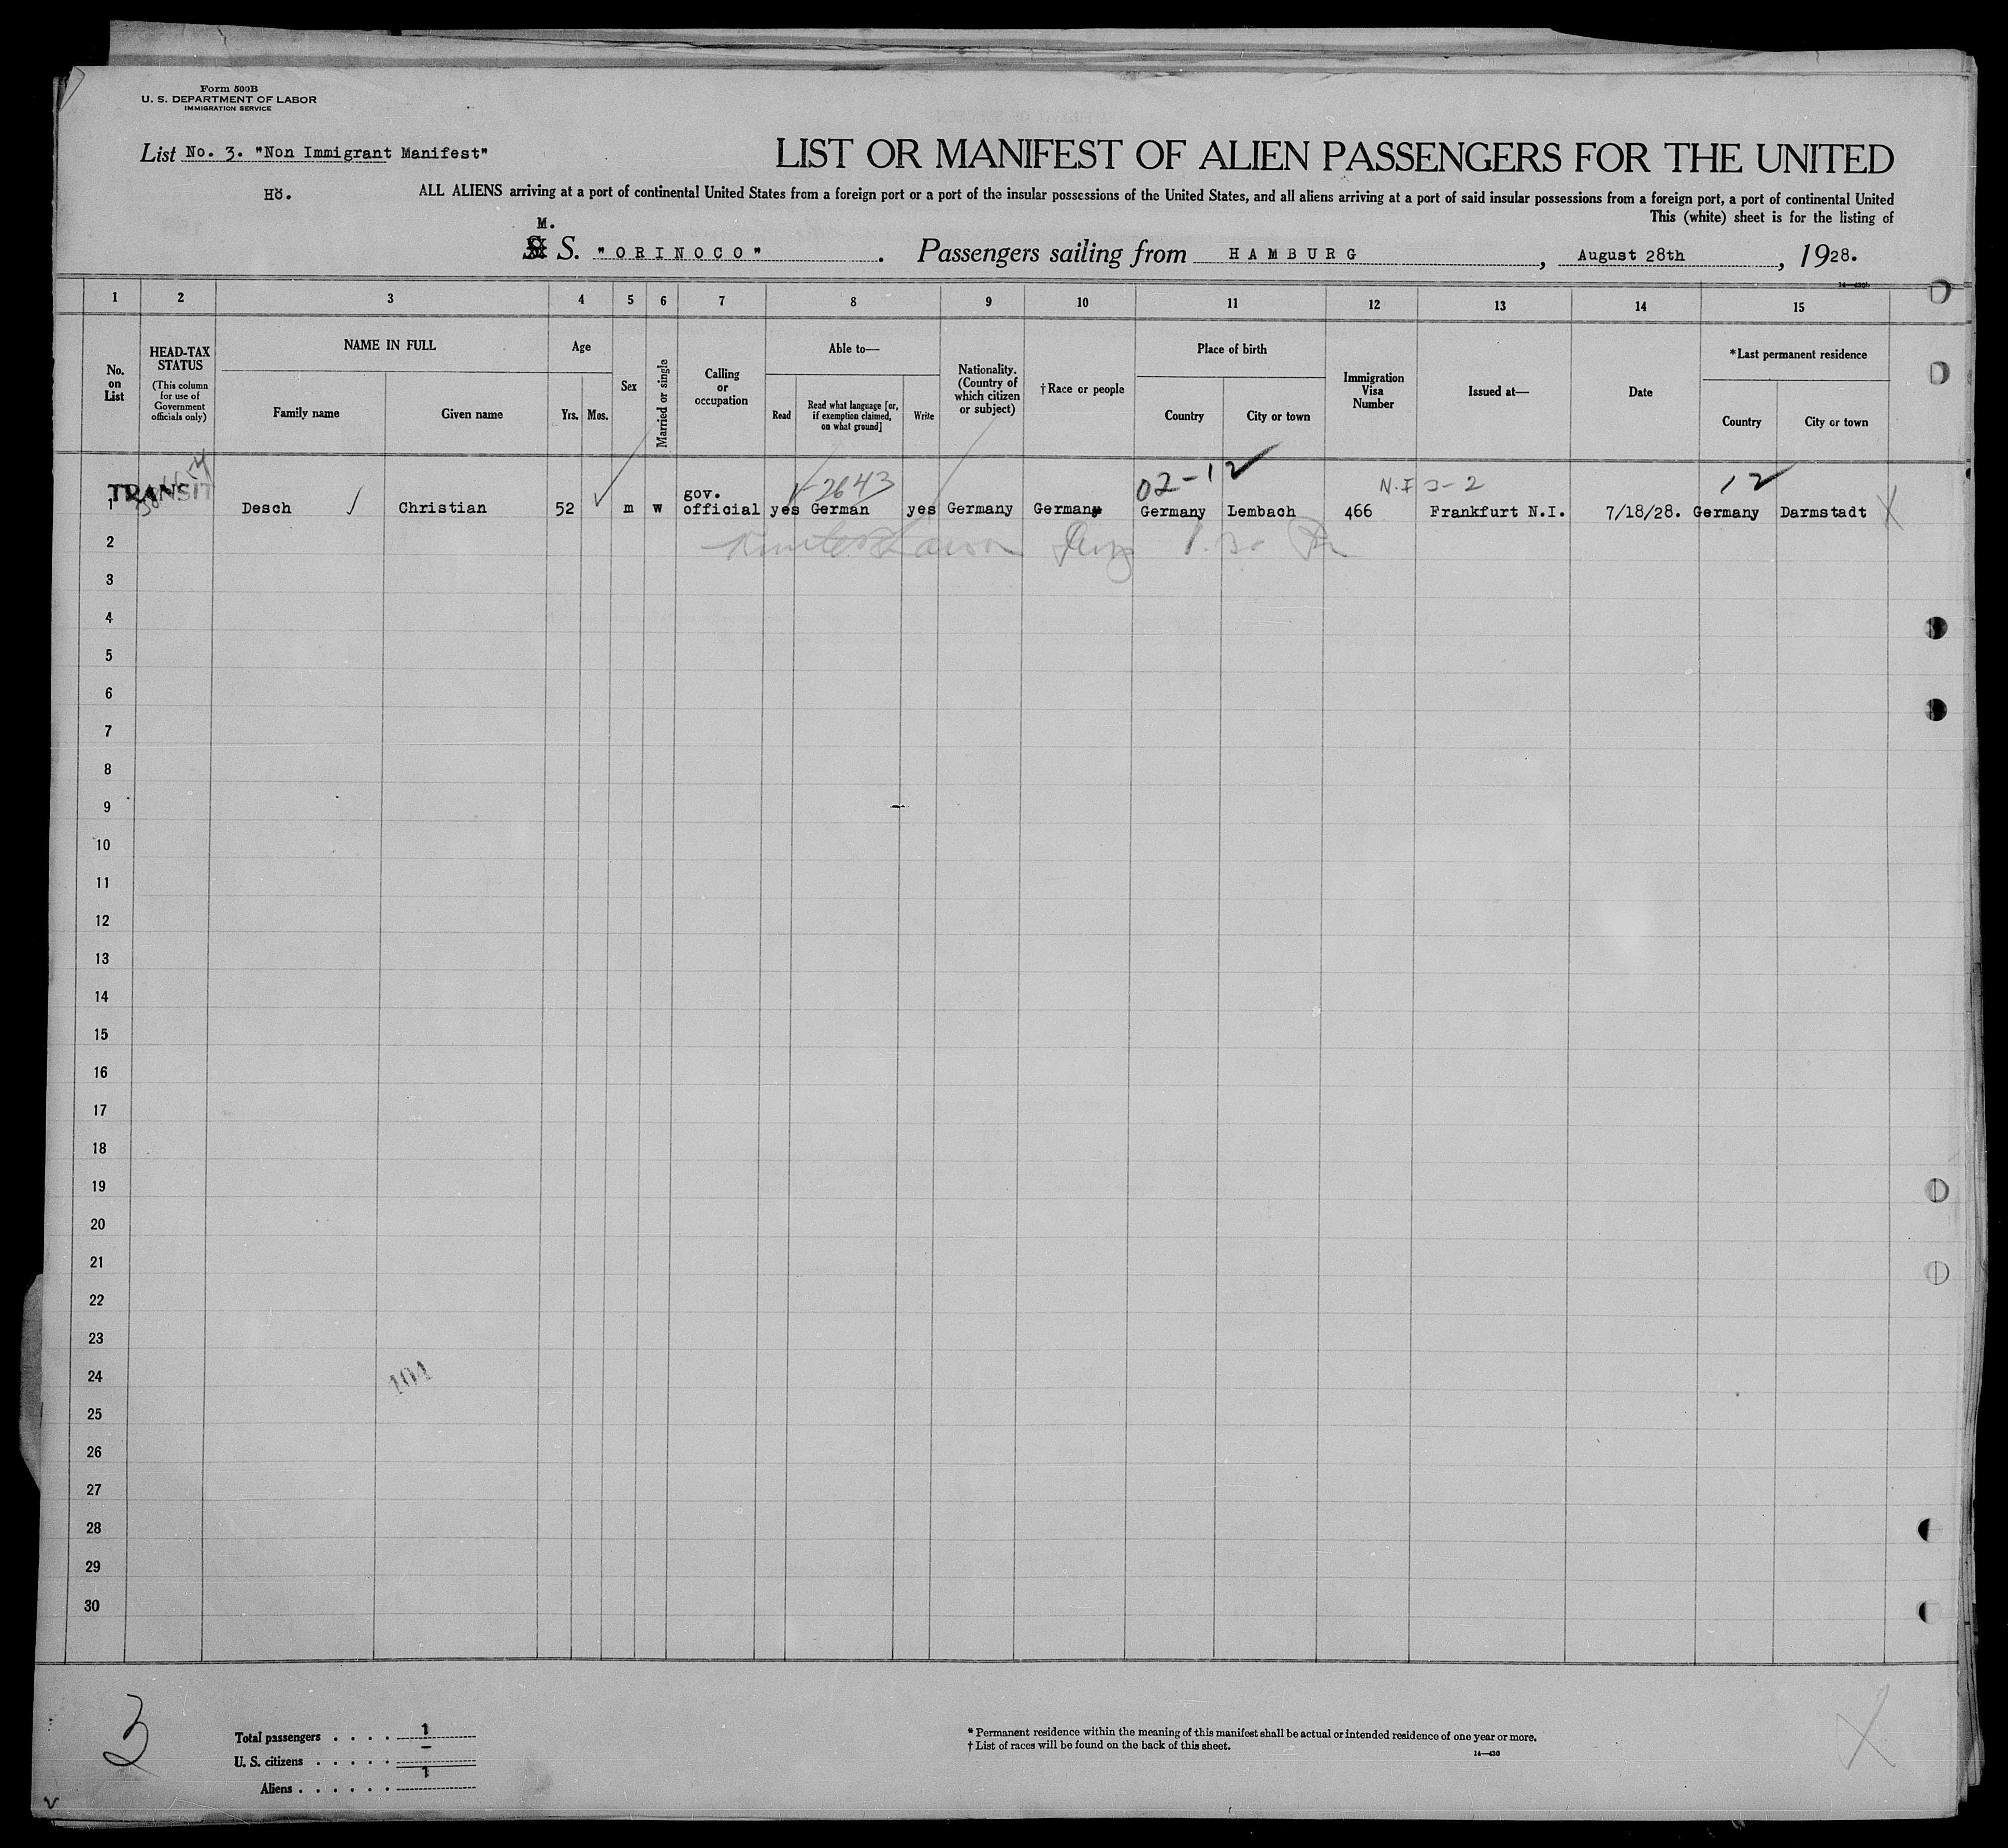 Form 500B
U. S. DEPARTMENT OF LABOR
IMMIGRATION SERVICE
List No. 3. "Non Immigrant Manifest"
LIST OR MANIFEST OF ALIEN PASSENGERS FOR THE UNITED
Hö.
ALL ALIENS arriving at a port of continental United States from a foreign port or a port of the insular possessions of the United States, and all aliens arriving at a port of said insular possessions from a foreign port, a port of continental United
This (white) sheet is for the listing of
M.
S. "ORINOCO". Passengers sailing from HAMBURG, August 28th, 1928.
1 2 3 4 5 6 7 8 9 10 11 12 13 14 15
No. on List
HEAD-TAX STATUS
(This column for use of Government officials only)
NAME IN FULL
Family name
Given name
Age
Yrs. Mos.
Sex
Married or single
Calling or occupation
Able to—
Read
Read what language [or, if exemption claimed, on what ground]
Write
Nationality. (Country of which citizen or subject)
†Race or people
Place of birth
Country
City or town
Immigration Visa Number
Issued at—
Date
*Last permanent residence
Country
City or town
TRANSIT
2643
02-12
N.I 3-2
12
1 Desch Christian 52 m w gov. official yes German yes Germany German Germany Lembach 466 Frankfurt N.I. 7/18/28. Germany Darmstadt
2
3
4
5
6
7
8
9
10
11
12
13
14
15
16
17
18
19
20
21
22
23
24
104
25
26
27
28
29
30
3
Total passengers . . . . 1
U. S. citizens . . . . . –
Aliens . . . . . . 1
* Permanent residence within the meaning of this manifest shall be actual or intended residence of one year or more.
† List of races will be found on the back of this sheet.
14—430